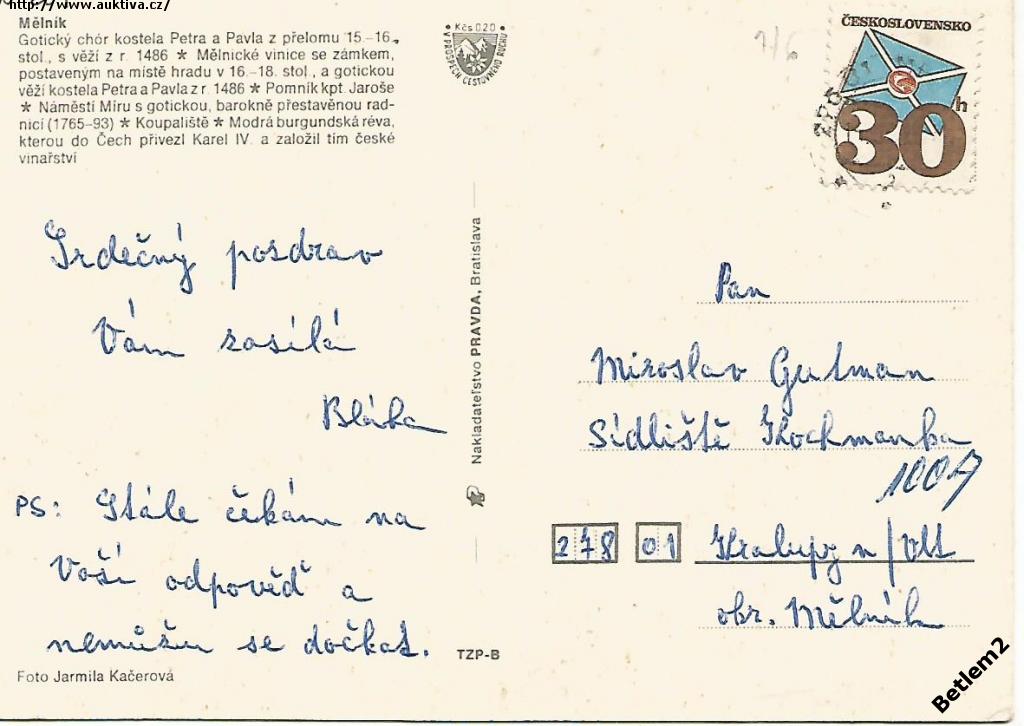 http://www.auktiva.cz/
Mělník
Gotický chór kostela Petra a Pavla z přelomu 15.-16.
stol., s věží z r. 1486 * Mělnické vinice se zámkem,
postaveným na místě hradu v 16.-18. stol., a gotickou
věží kostela Petra a Pavla z r. 1486 * Pomník kpt. Jaroše
* Náměstí Míru s gotickou, barokně přestavěnou rad-
nicí (1765-93) * Koupaliště * Modrá burgundská réva,
kterou do Čech přivezl Karel IV. a založil tím české
vinařství
Kčs 0,20
V PROSPĚCH CESTOVNÉHO RUCHU
1/6
ČESKOSLOVENSKO
30h
Srdečný pozdrav
Vám zasílá
Bláha
PS: Stále čekám na
Vaší odpověď a
nemůžu se dočkat.
Foto Jarmila Kačerová
Nakladateľstvo PRAVDA, Bratislava
TZP-B
Pan
Miroslav Gutman
Sídliště Hochmanka
1007
278 01 Kralupy n/Vlt
okr. Mělník
Betlem2